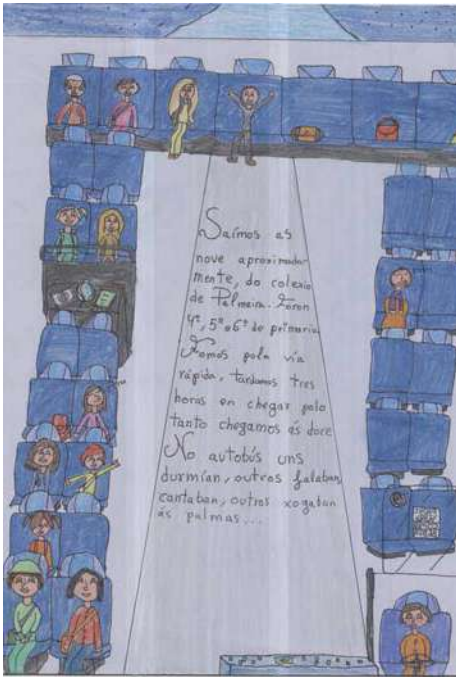 Saímos ás
nove aproximada-
mente, do colexio
de Palmeira. Foron
4º, 5º e 6º de primaria
Fomos pola vía
rápida, tardamos tres
horas en chegar polo
tanto chegamos ás doce
No autobús uns
durmían, outros falaban,
cantaban, outros xogaban
ás palmas...